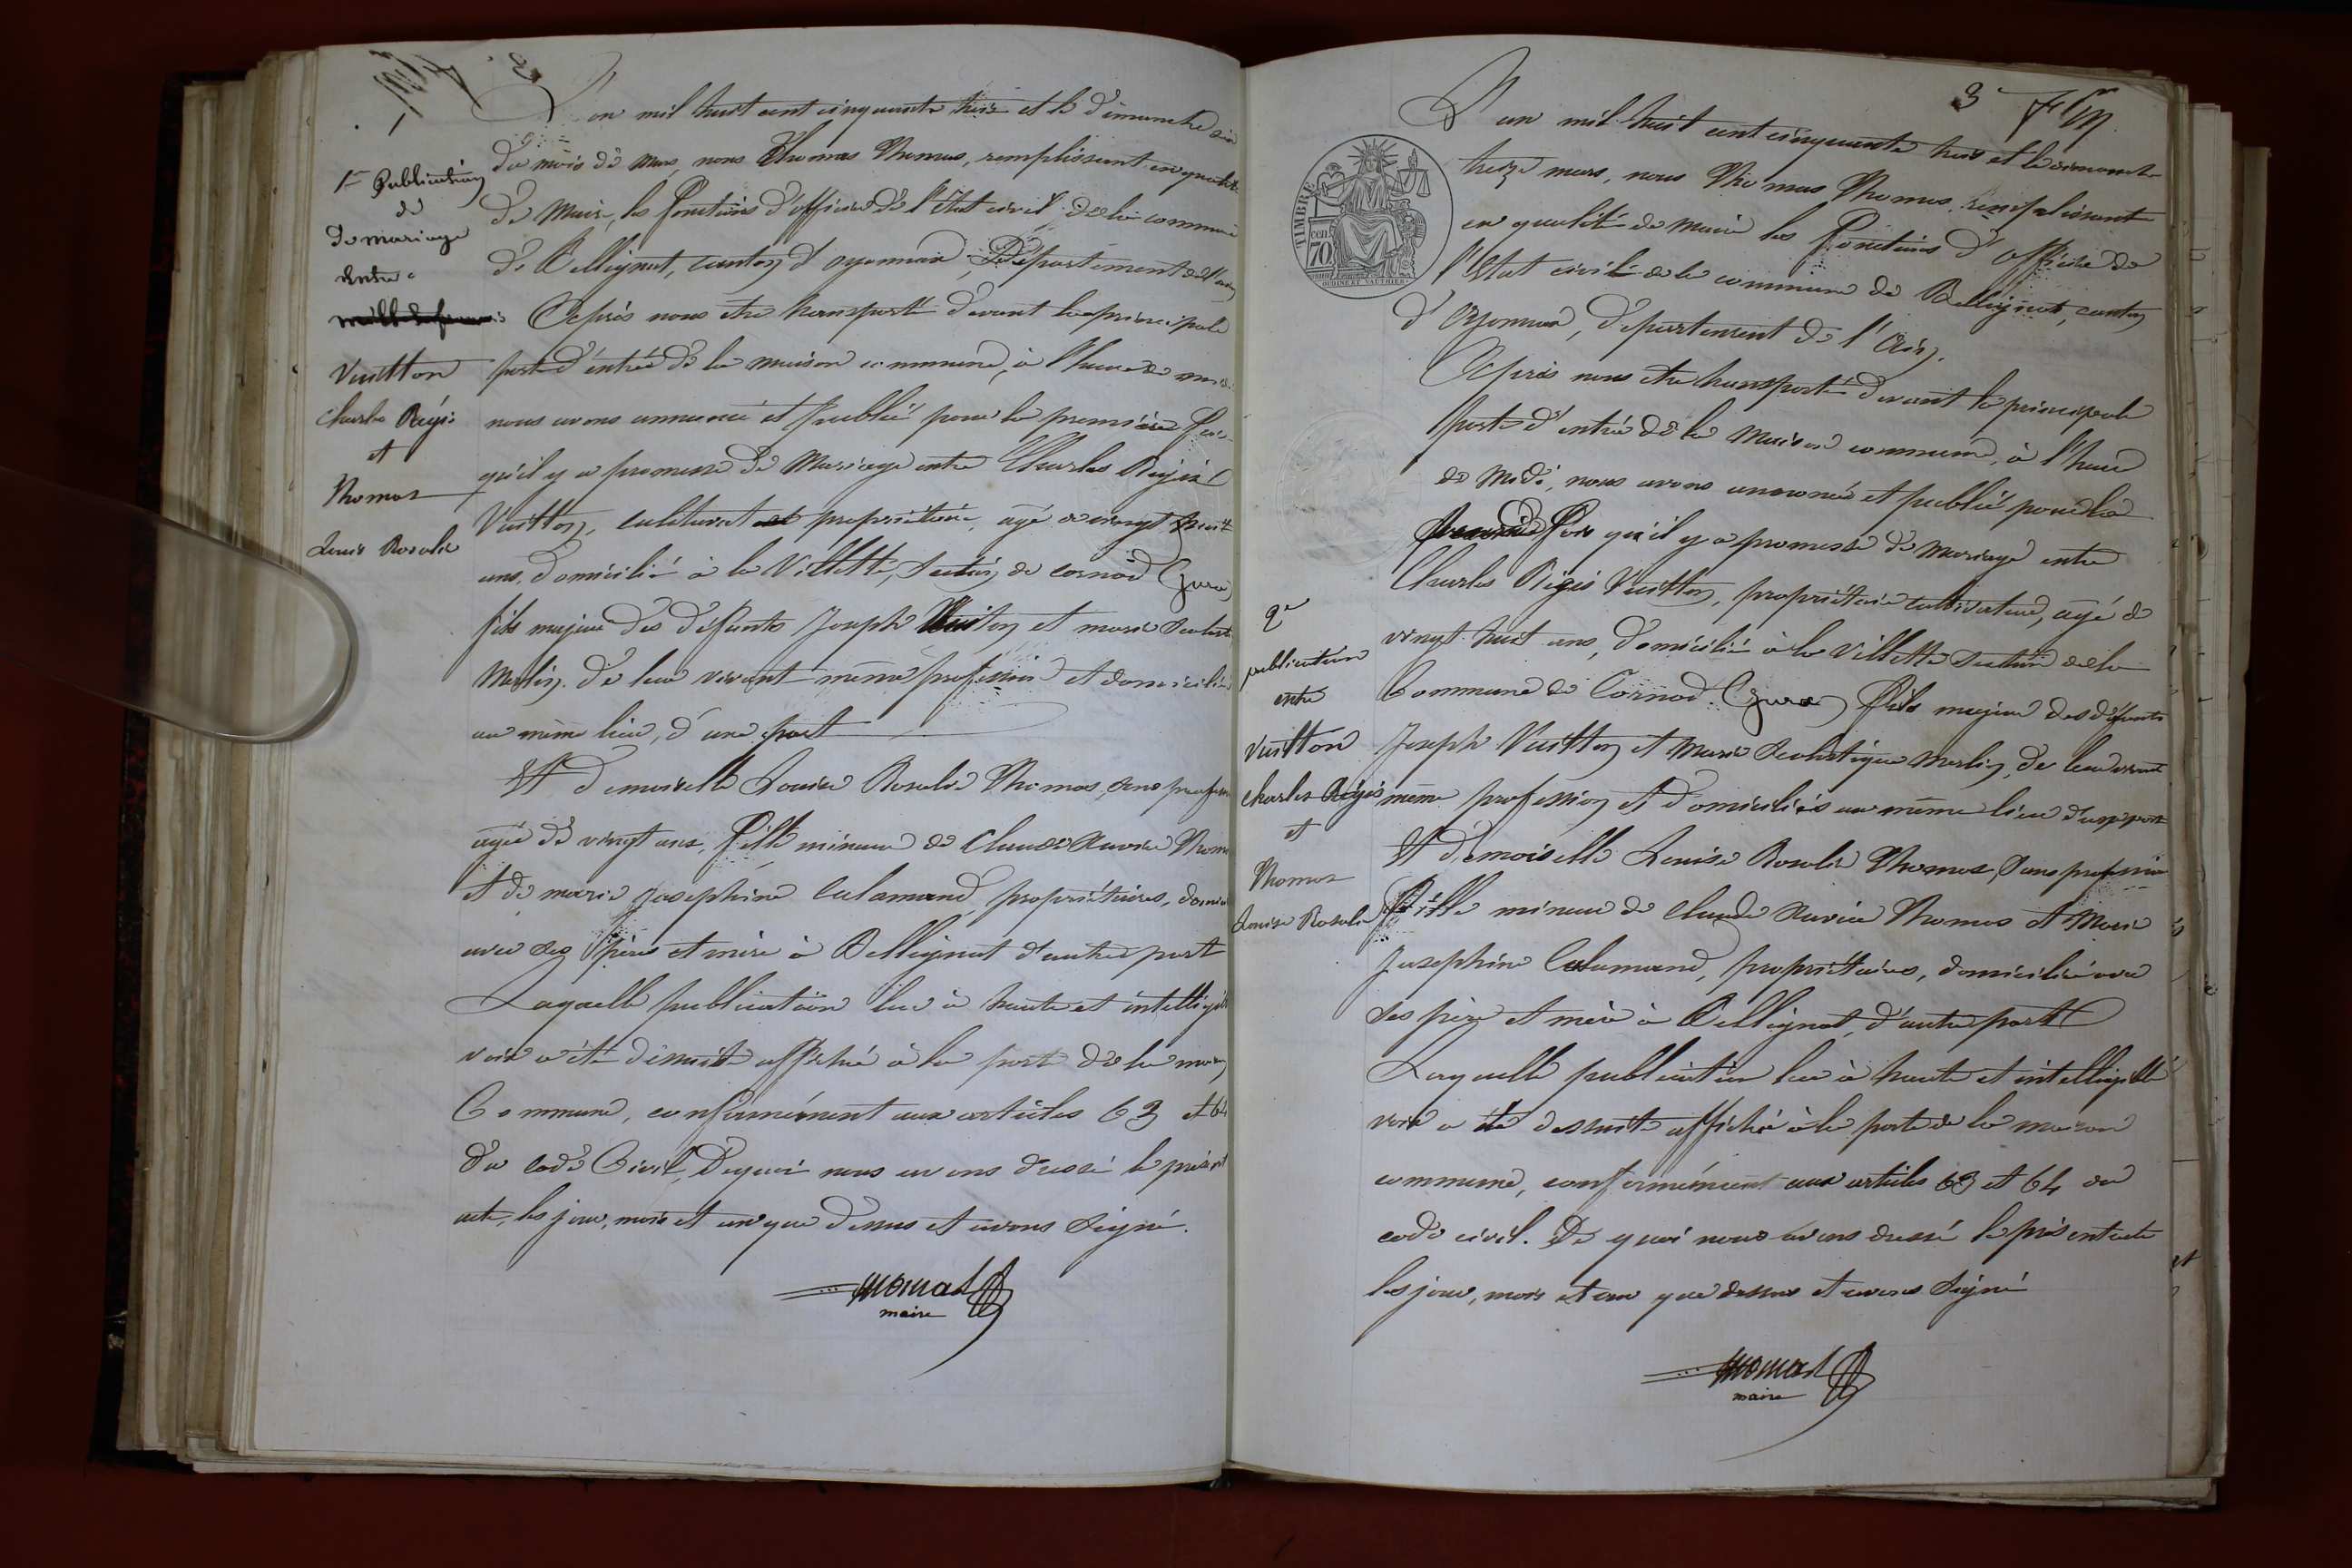 L'an mil huit cent cinquante trois et le dimanche six
du mois de mars, nous Thomas Thomas, remplissant en qualité
de Maire, les fonctions d'officier de l'Etat civil de la commune
de Bellignat, canton d'oyonnax, Département de l'ain
Après nous être transporté devant la principale
porte d'entrée de la maison commune, à l'heure de midi
nous avons annoncé et publié pour la première fois
qu'il y a promesse de Mariage entre Charles Régis
Vuitton, cultivateur propriétaire, agé de vingt huit
ans, domicilié à la Villette, Section de cornod (Jura)
fils majeur des défunts Joseph Vuitton et marie Scolastique
Merlin, de leur vivant même profession et domiciliés
au même lieu, d'une part
Et demoiselle Louise Rosalie Thomas, sans profession
agée de vingt ans, fille mineure de Claude Xavier Thomas
et de marie Josephine Calamand, propriétaires, domiciliée
avec ses père et mère à Bellignat d'autre part
Laquelle publication lue à haute et intelligible
voix a été de suite affichée à la porte de la maison
Commune, conformément aux articles 63 et 64
du code Civil, De quoi nous avons dressé le présent
acte, les jour, mois et an que dessus et avons signé.
Thomas
maire
1re Publication
de
de mariage
Entre
Vuitton
Charles Régis
et
Thomas
Louise Rosalie
3
L'an mil huit cent cinquante trois et le dimanche
treize mars, nous Thomas Thomas, remplissant
en qualité de Maire les fonctions d'officier de
l'Etat civil de la commune de Bellignat, canton
d'Oyonnax, département de l'Ain.
Après nous être transporté devant la principale
porte d'entrée de la Maison commune, à l'heure
de Midi, nous avons annoncé et publié pour la
fois qu'il y a promesse de Mariage entre
Charles Régis Vuitton, propriétaire cultivateur, agé de
vingt huit ans, domicilié à la Villette Section de la
Commune de Cornod (Jura) fils majeur des défunts
Joseph Vuitton et Marie Scolastique Merlin, de leur vivant
même profession et domiciliés au même lieu d'une part
Et demoiselle Louise Rosalie Thomas, Sans profession
fille mineure de Claude Xavier Thomas et Marie
Josephine Calamand, propriétaires, domiciliée avec
ses père et mère à Bellignat, d'autre part
Laquelle publication lue à haute et intelligible
voix a été de suite affichée à la porte de la maison
commune, conformément aux articles 63 et 64 du
code civil. De quoi nous avons dressé le présent acte
les jour, mois et an que dessus et avons signé
Thomas
maire
2e
publication
entre
Vuitton
Charles Régis
et
Thomas
Louise Rosalie
TIMBRE
70 cen.
OUDINE ET VAUTHIER